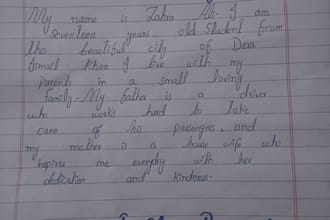 My name is Zahra Ali. I am
seventeen years old student from
the beautiful city of Dera
Ismail Khan. I live with my
parents in a small loving
family. My father is a driver
who works hard to take
care of his passengers, and
my mother is a house wife who
inspires me everyday with her
dedication and kindness.